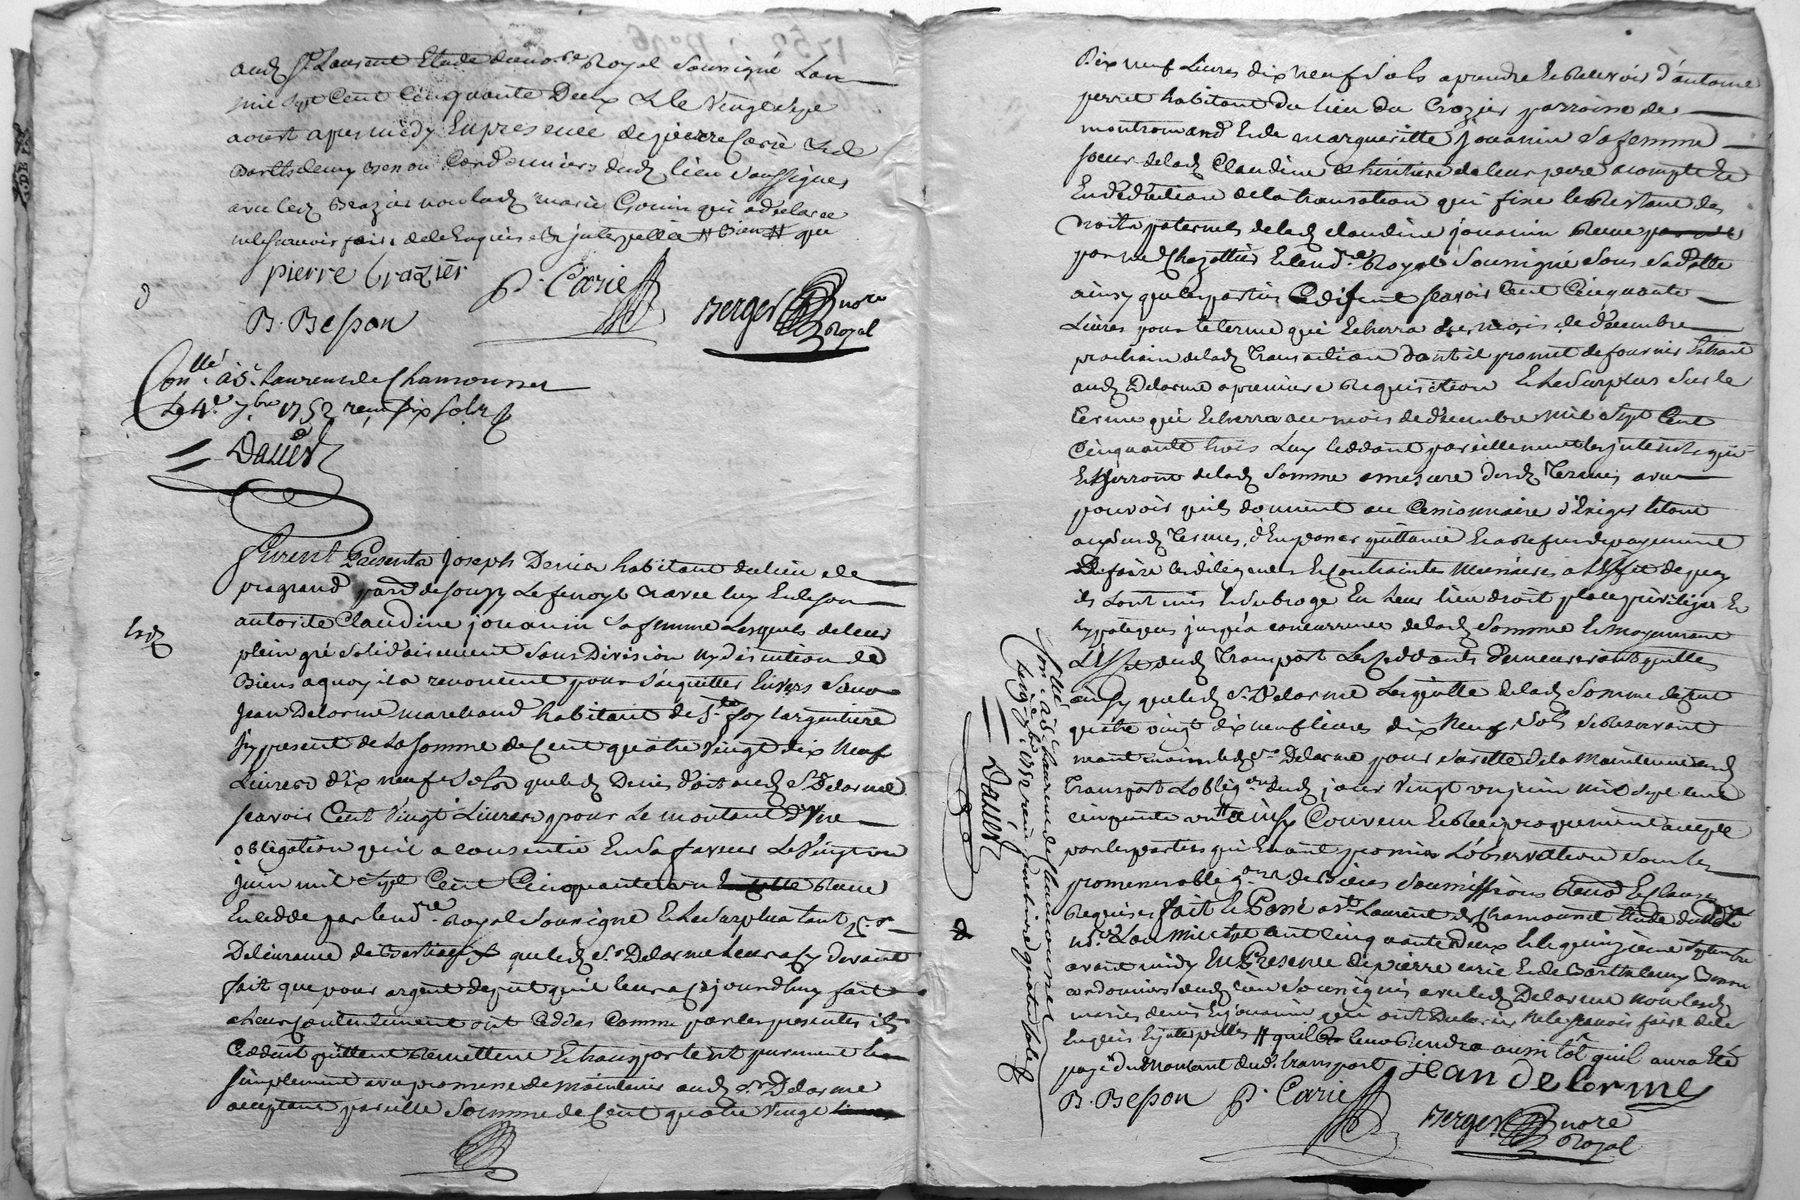 audt St Laurent Etude du no.re Royal Soussigné Lan
mil Sept Cent Cinquante Deux & le Vingt Sept
aoust apres midy En presence de pierre Carie & de
Barthelemy Besson Cordonniers dudt lieu Soussignes
avec ledt Brazier non ladt marie Gonin qui a declaré
ne le scavoir faire de ce Enquise & interpellee # bien # que
pierre brazier
P. Carie
B. Besson
Berger no.re Royal
Con.llé à St Laurent de Chamousset
Le 4.e 7bre 1752 reçu six sols
Dauer
Furent Presents Joseph Denis habitant du lieu de
pragrand parr.se de Souzy Le fenoyl & avec luy & de Son
autorité Claudine jouanin Sa femme Lesquels de leur
plein gré Solidairement Sans Division ny discution de
Biens a quoy ils renoncent pour S'aquitter Envers Sieur
Jean Delorme marchand habitant de S.te foy Largentiere
icy present de La Somme de Cent quatre Vingt dix Neuf
Livres dix neuf Sols que ledt Denis doit audt Sr Delorme
Scavoir Cent Vingt Livres pour Le montant d'Une
obligation qu'il a consentie En Sa faveur Le Vingt un
juin mil Sept Cent Cinquante un Receue
par le no.re Royal Soussigné & Le Surplus tant pr
Delivrance de que ledt Sr Delorme Leur a cy devant
fait que pour argent depuis qu'il leur a ce jourdhuy fait
a Leur Contentement ont Ceddés Comme par les presentes ils
Ceddent quittent Remettent & transportent purement &
Simplement avec promesse de maintenir audt Sr Delorme
acceptant pareille Somme de Cent quatre Vingt
Dix neuf Livres dix neuf Sols a prendre & Recevoir d'antoine
perret habitant du lieu du Crozier parroisse de
montromand & de margueritte jouanin Sa femme
soeur de ladt Claudine & heritiere de leur pere a compte &
En Deduction de la transation qui fixe le Restant des
Droits paternels de ladt Claudine jouanin Receue
par me Chazottier & le no.re Royal Soussigné Sous Sa Datte
ainsy que les parties Le disent scavoir Cent Cinquante
Livres pour le terme qui Echerra au mois de decembre
prochain de ladt Transaction dont il promet de fournir Extrait
audt Delorme a premiere Requisition & Le Surplus Sur le
terme qui Echerra au mois de decembre mil Sept Cent
Cinquante trois Luy Ceddant pareillement les interests qui
de ladt Somme a mesure desdt Termes avec
pouvoir qu'ils donnent au Cessionnaire d'Exiger le tout
ausdits Termes, d'En passer quittance & a deffaut de payement
De faire les diligences & Contraintes necessaires a L'effet de quoy
ils L'ont mis & Subrogé En Leur lieu droit place privilege &
hypoteques jusqu'a concurrence de ladt Somme & Moyennant
L'Effet dudt Transport Les Ceddants demeureront quittes
ainsy que ledt Sr Delorme Les quitte de ladt Somme de Cent
quatre vingt dix neuf livres dix Neuf Sols Se Reservant
neantmoins ledt Sr Delorme pour Sureté de la Maintenue dudt
Transport L'oblig.on dudt jour Vingt un juin mil Sept Cent
cinquante un # ainsy Convenu & Reciproquement accepté
par les parties qui En ont promis L'observation Sous les
promesses oblig.ons de Biens Soumissions Renons & clauses
Requises fait & Passé a St Laurent de Chamousset Etude dudt
no.re L'an Mil Sept Cent Cinquante Deux & le quinzieme Septembre
avant midy En Presence de pierre carie & de Barthelemy Besson
cordonniers dudt lieu Soussignés avec ledt Delorme non lesdts
mariés denis & jouanin qui ont Declaré ne le scavoir faire de ce
Enquis & interpellés # qu'il leur Rendra aussitôt qu'il aura Eté
payé du Montant dudt transport
jean delorme
B. Besson
P. Carie
Berger no.re Royal
Con.llé a St Laurent de Chamousset
Le 7bre 1752 reçu quatre sols
Dauer